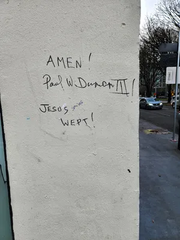 AMEN!
Paul W. Duncan III!
JESUS
WEPT!